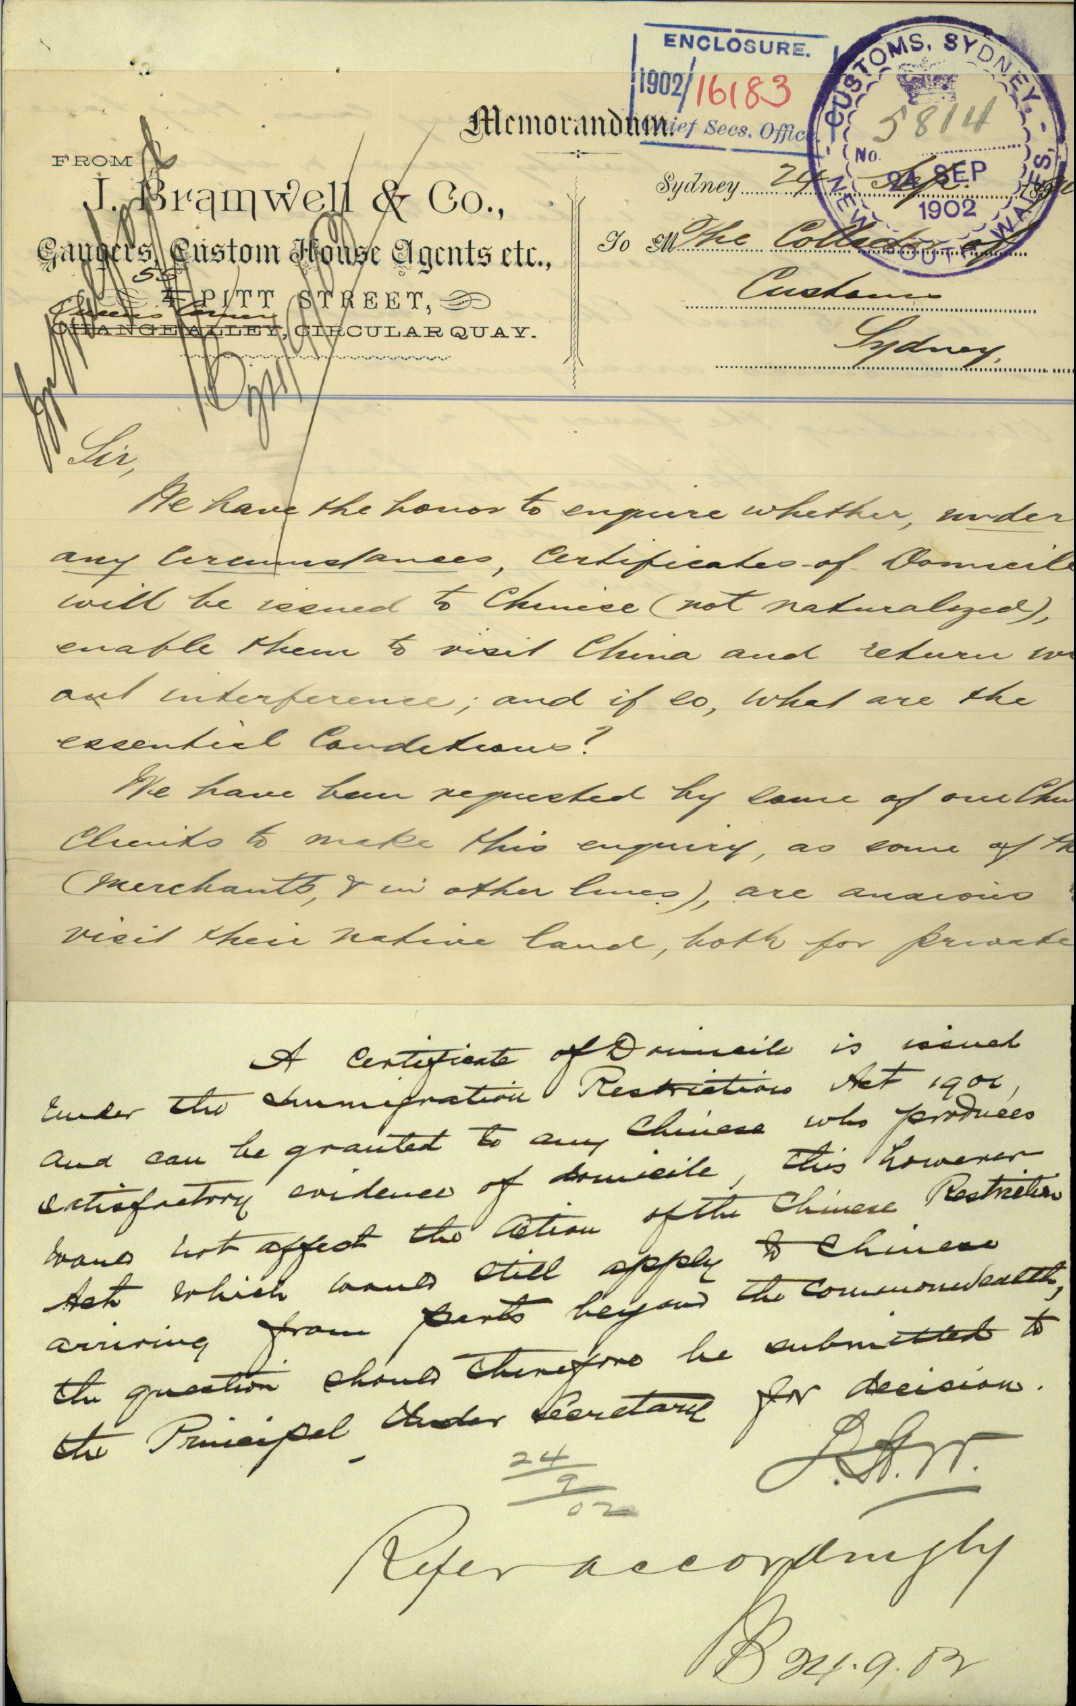 ENCLOSURE.
1902/16183
Chief Secs. Office
CUSTOMS, SYDNEY,
NEW SOUTH WALES.
No. 5814
24 SEP
1902
Memorandum.
FROM
J. Bramwell & Co.,
Gaugers, Custom House Agents etc.,
53
4 PITT STREET,
Queens Corner
CHANGE ALLEY, CIRCULAR QUAY.
Sydney 24 Sep. 190
To M The Collector of
Customs
Sydney.
Sir,
We have the honor to enquire whether, under
any circumstances, Certificates of Domicile
will be issued to Chinese (not naturalized),
enable them to visit China and return wi
out interference; and if so, what are the
essential Conditions?
We have been requested by some of our Chin
Clients to make this enquiry, as some of th
(Merchants, & in other lines), are anxious
visit their native land, both for private
A certificate of Domicile is issued
under the Immigration Restriction Act 1901,
and can be granted to any Chinese who produces
satisfactory evidence of domicile, this however
would not affect the action of the Chinese Restriction
Act which would still apply to Chinese
arriving from parts beyond the Commonwealth,
the question should therefore be submitted to
the Principal Under Secretary for decision.
24
9
02
Refer accordingly
24.9.02